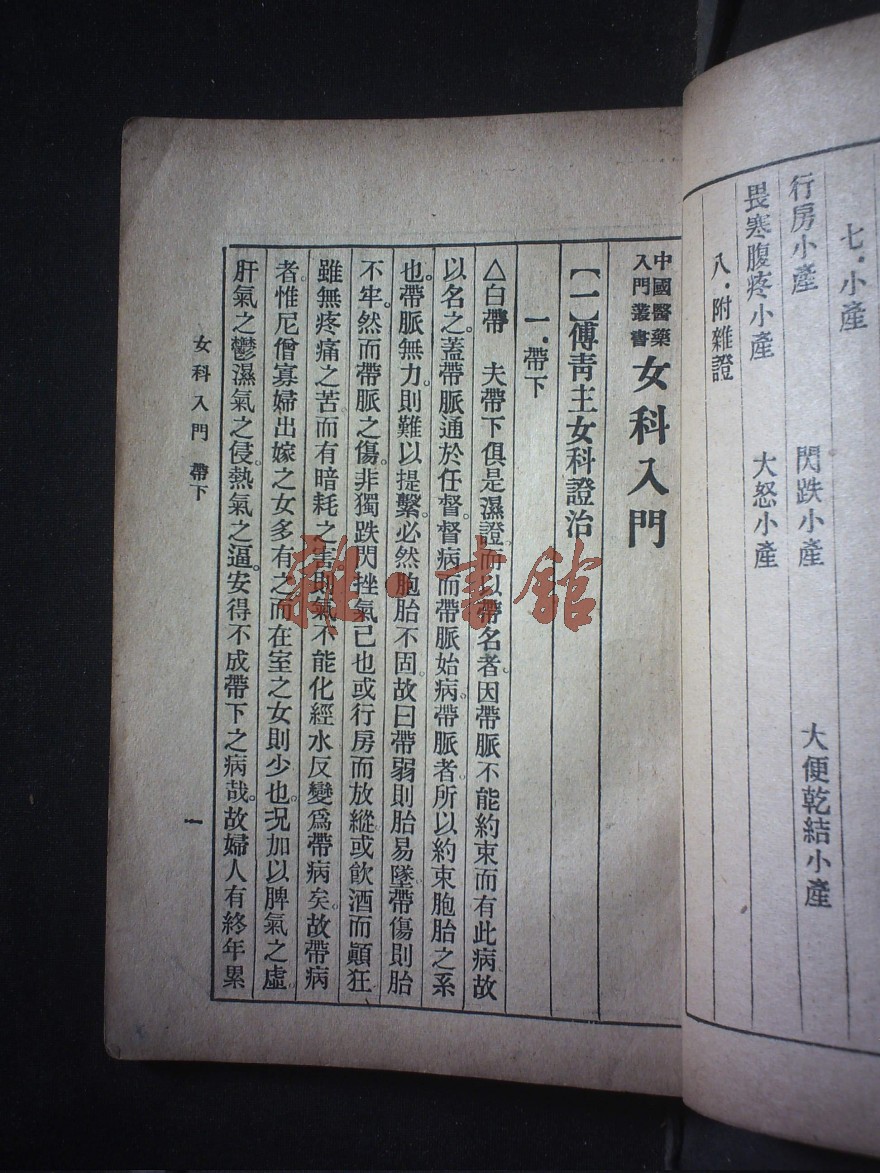 七．小產
行房小產　閃跌小產　大便乾結小產
畏寒腹疼小產　大怒小產
八．附雜證
中國醫藥
入門叢書
女科入門
【一】傅靑主女科證治
一．帶下
△白帶　夫帶下俱是濕證。而以帶名者。因帶脈不能約束而有此病故
以名之。蓋帶脈通於任督。督病而帶脈始病。帶脈者。所以約束胞胎之系
也。帶脈無力。則難以提繫。必然胞胎不固。故曰帶弱則胎易墜。帶傷則胎
不牢。然而帶脈之傷。非獨跌閃挫氣已也。或行房而放縱。或飮酒而顚狂
雖無疼痛之苦。而有暗耗之害。則氣不能化經水。反變爲帶病矣。故帶病
者。惟尼僧寡婦出嫁之女多有之。而在室之女則少也。况加以脾氣之虛。
肝氣之鬱。濕氣之侵。熱氣之逼。安得不成帶下之病哉。故婦人有終年累
女科入門　帶下
一
雜·書館